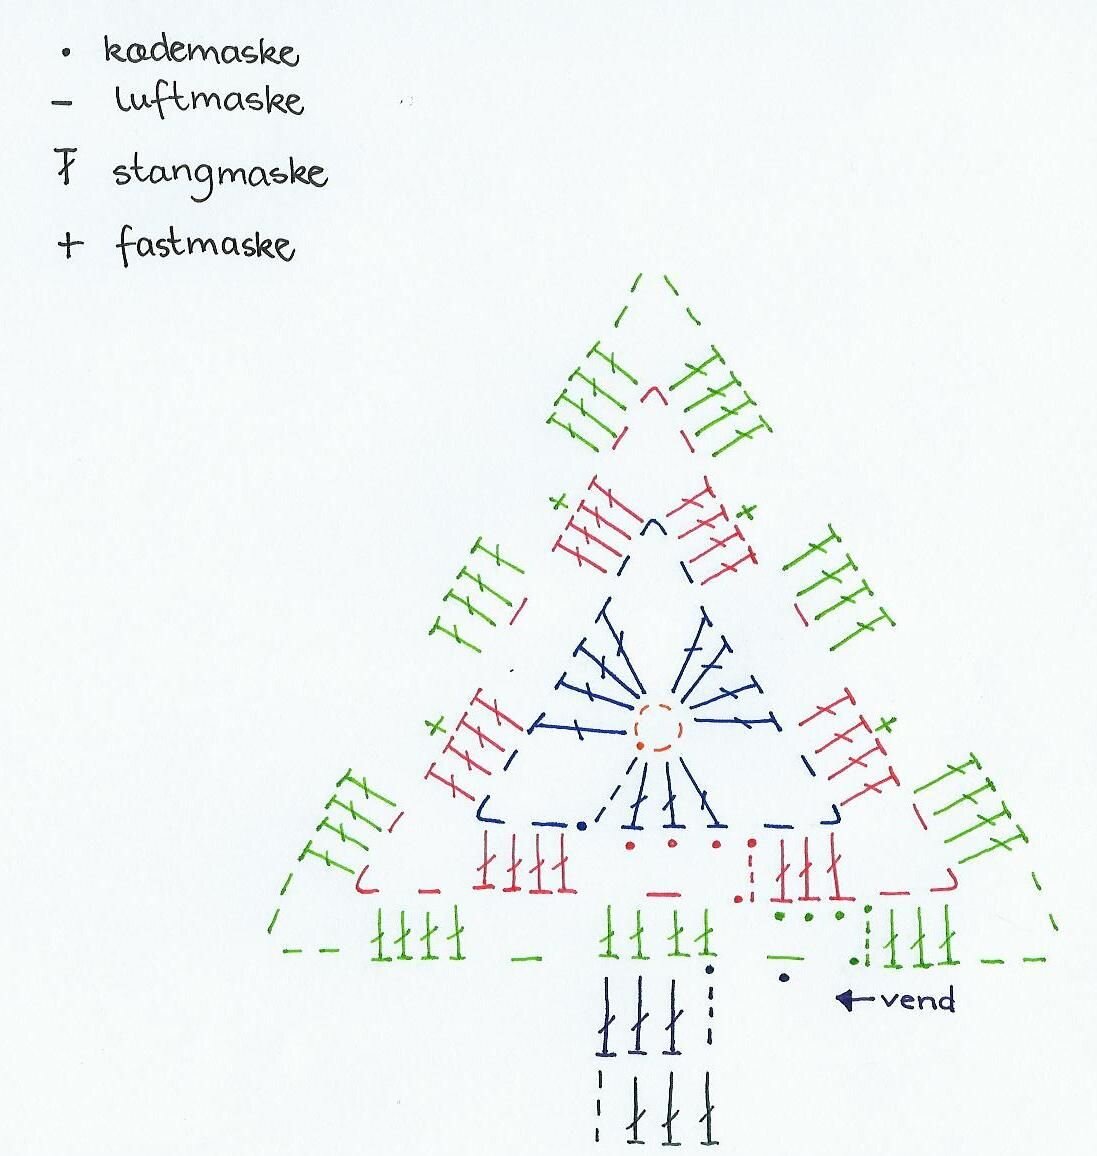 kædemaske
luftmaske
stangmaske
fastmaske
vend